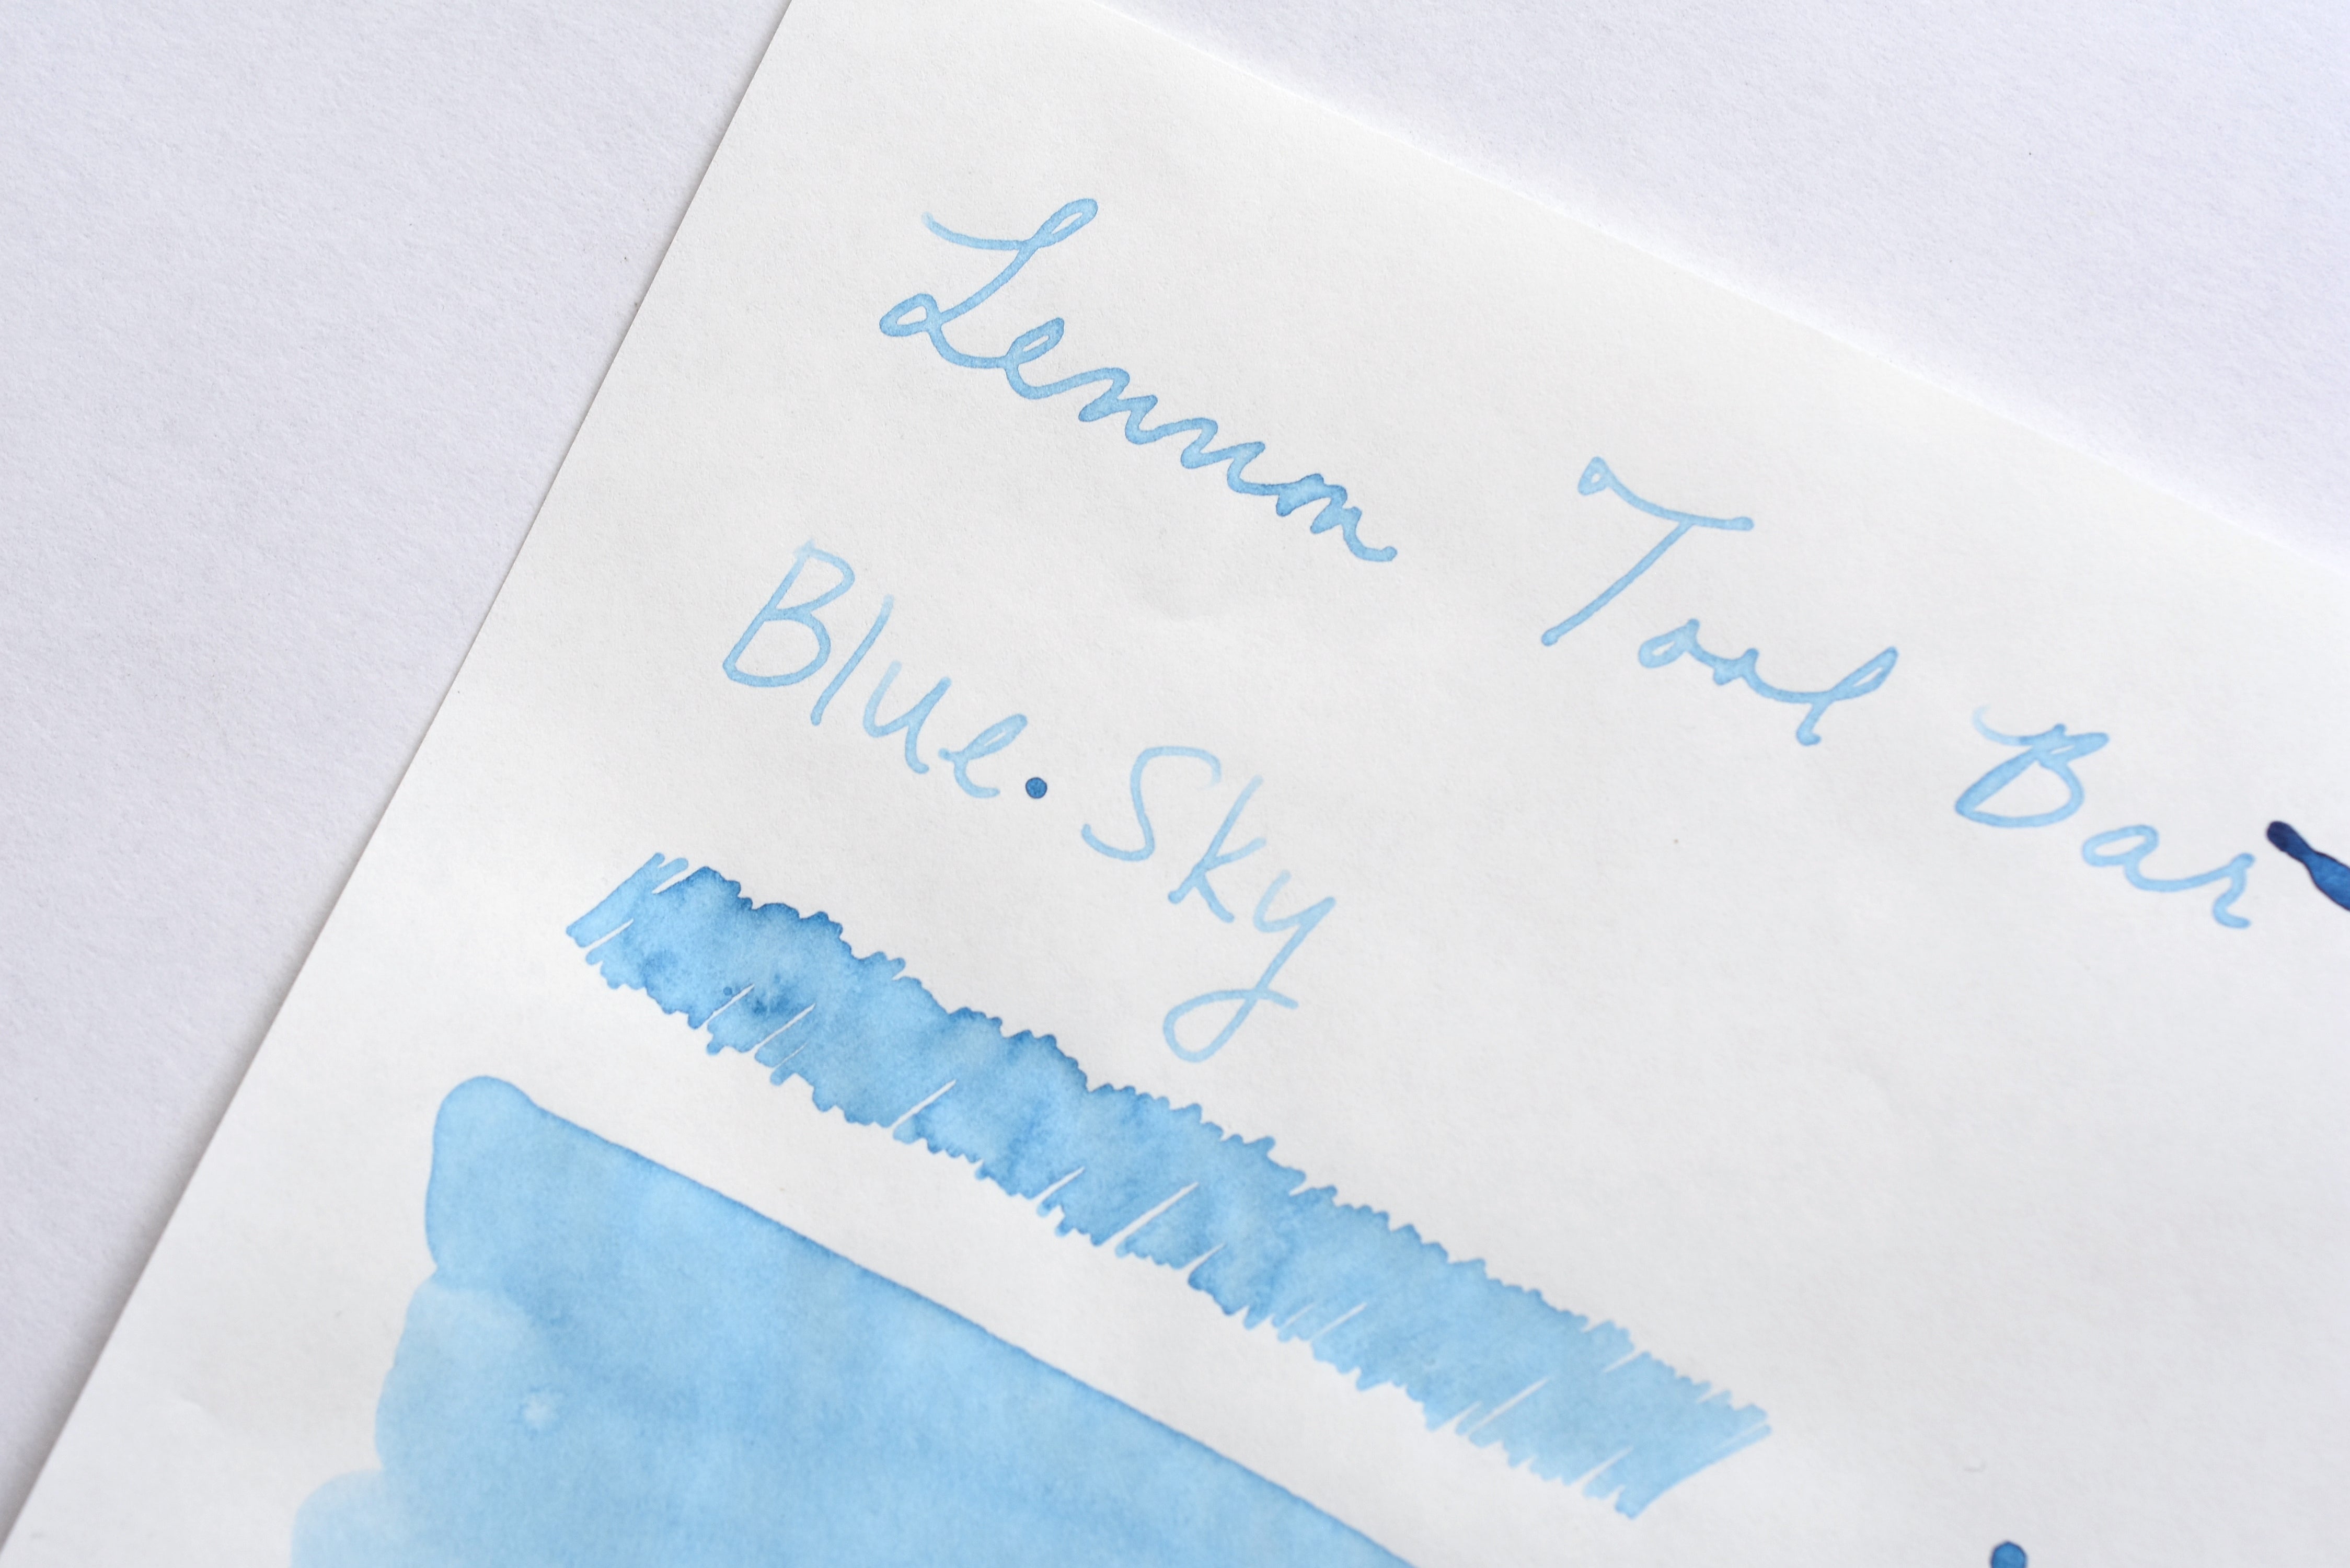 Lennon Tool Bar
Blue Sky